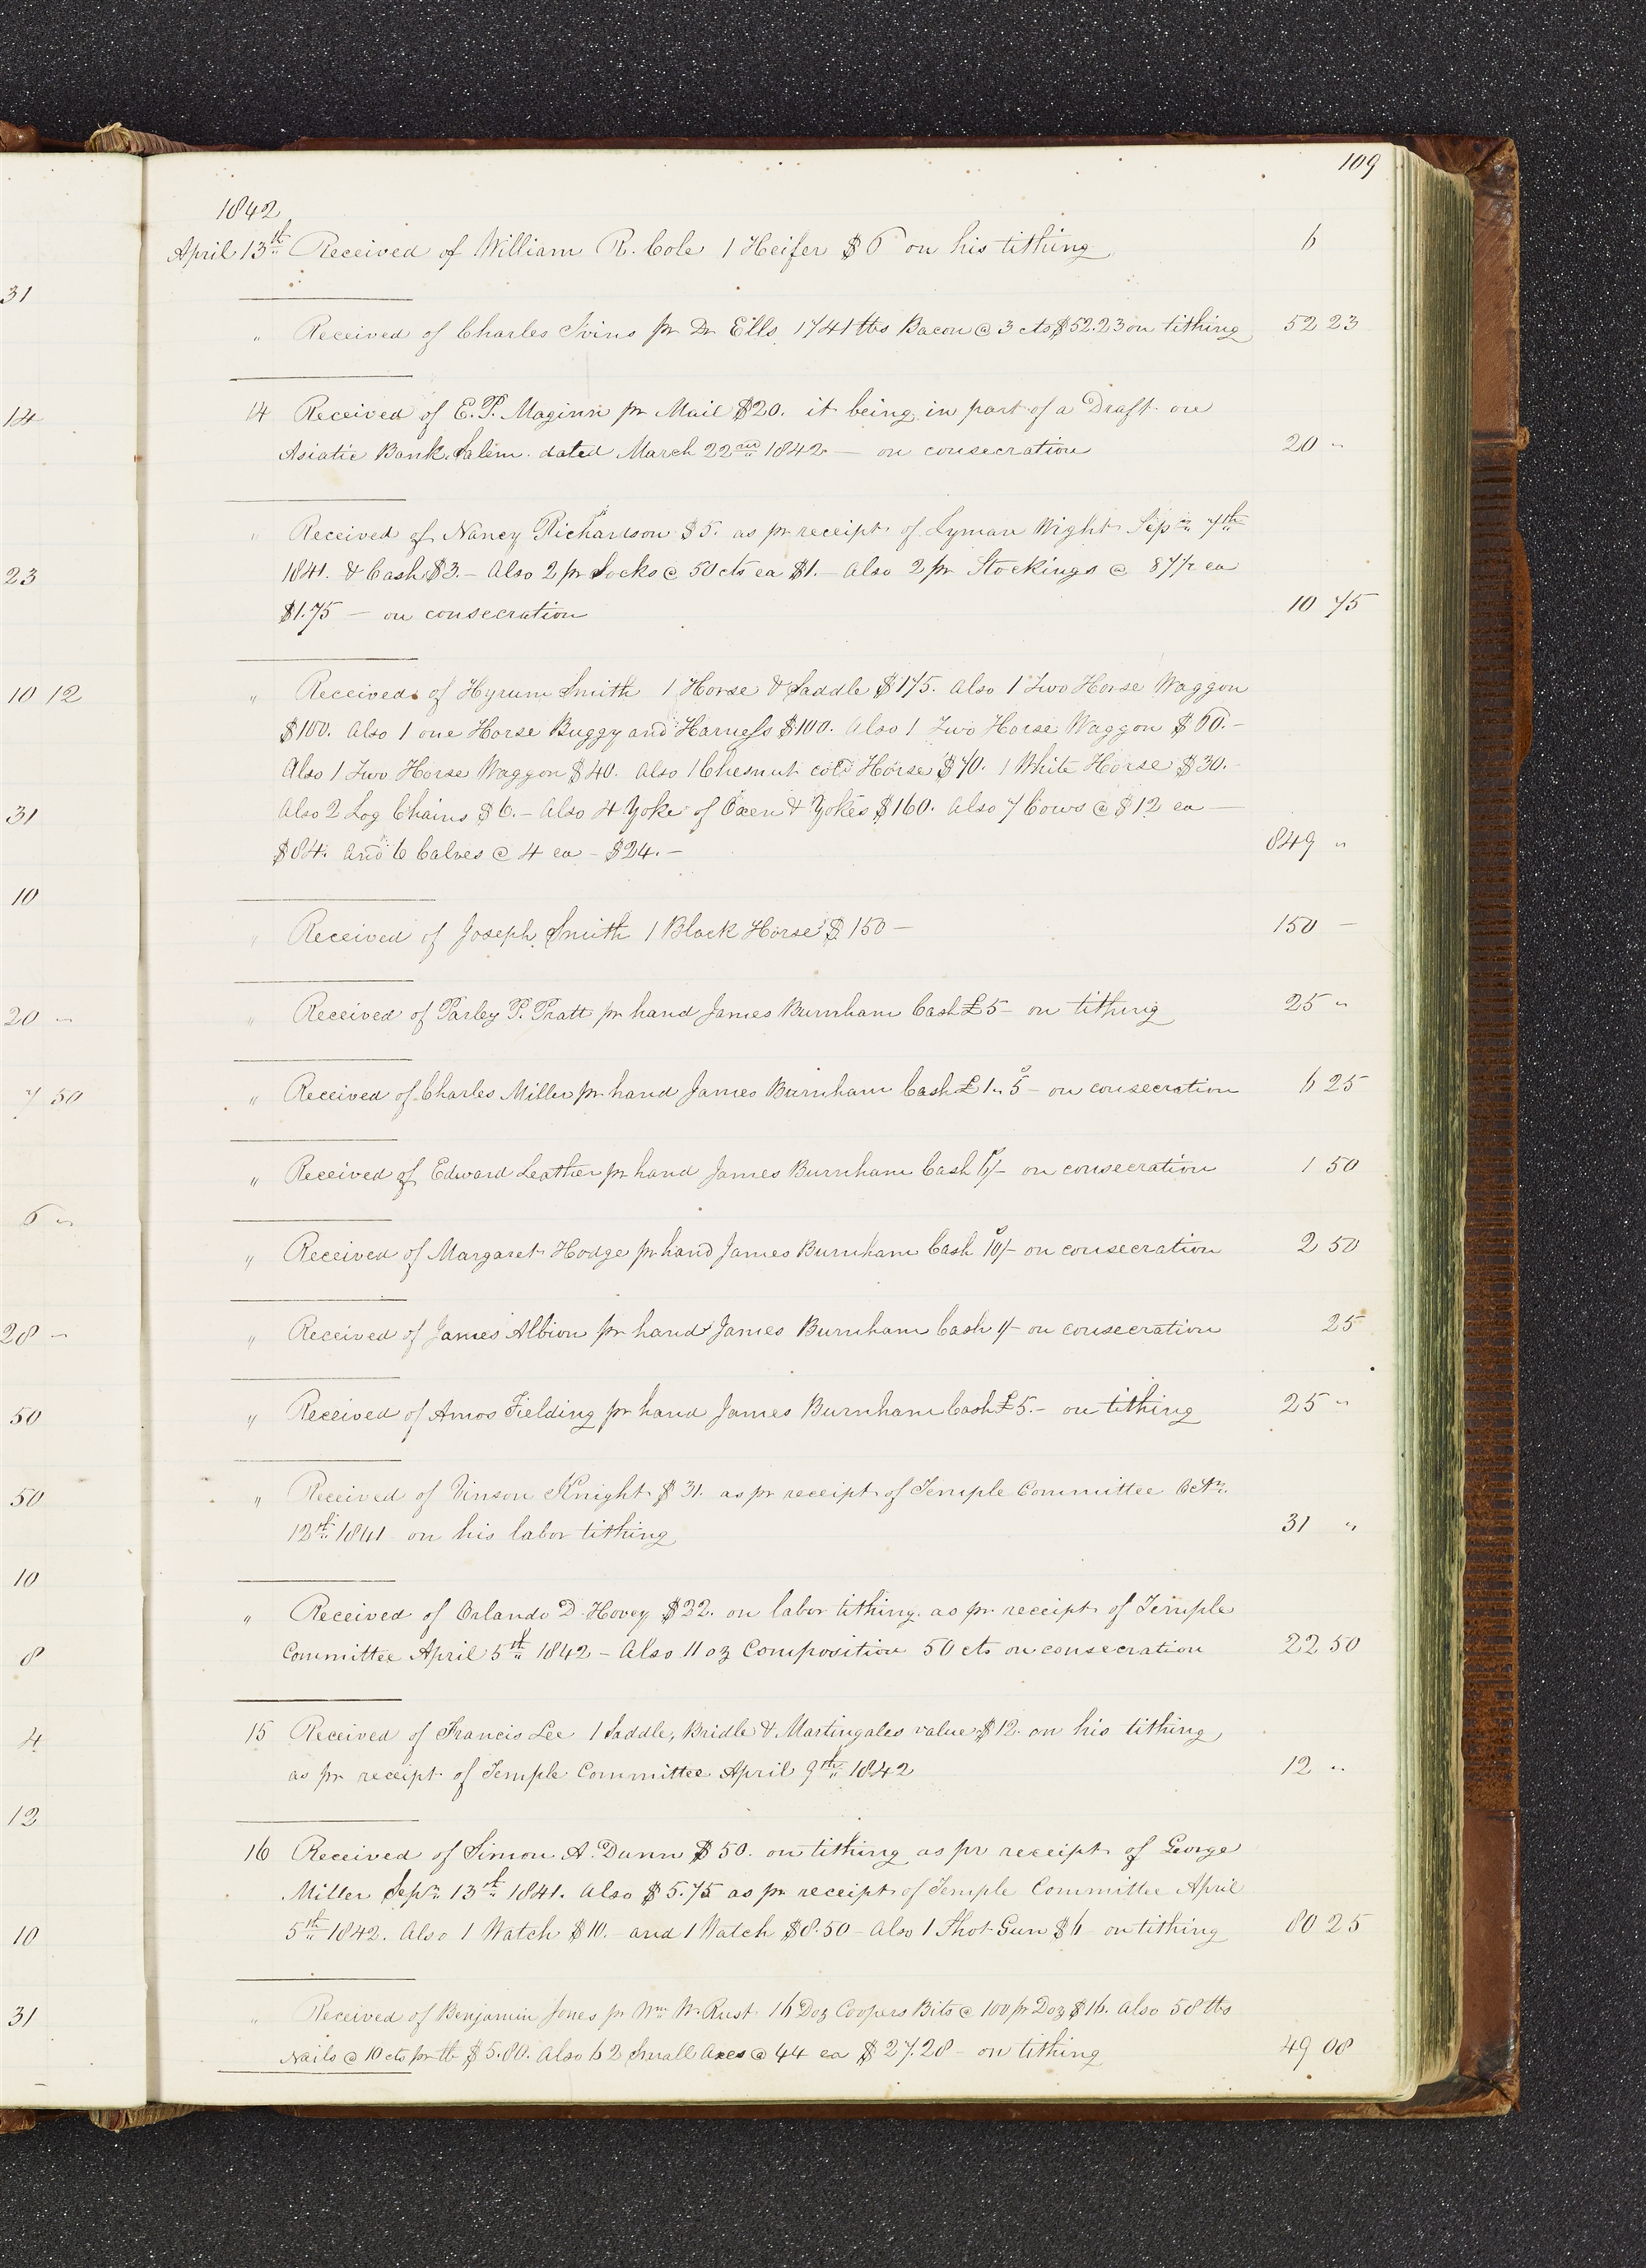 109
1842
April 13th Received of William R. Cole 1 Heifer $6 on his tithing 6
31
" Received of Charles Ivins pr Dr Ells. 1741 lbs Bacon @ 3 cts $52.23 on tithing 52 23
14 Received of E. P. Maginn pr Mail $20. it being in part of a Draft on
14
Asiatic Bank. Salem. dated March 22nd 1842. — on consecration 20 "
" Received of Nancy Richardson $5. as pr receipt of Lyman Wight Sepr. 7th
23
1841. & Cash $3. – Also 2 pr Socks @ 50 cts ea $1. – Also 2 pr Stockings @ 87½ ea
$1.75 — on consecration 10 75
10 12
" Received of Hyrum Smith 1 Horse & Saddle $175. Also 1 Two Horse Waggon
$100. Also 1 one Horse Buggy and Harness $100. Also 1 Two Horse Waggon $60. –
Also 1 Two Horse Waggon $40. Also 1 Chesnut cold Horse $70. 1 White Horse $30. –
31
Also 2 Log Chains $6. – Also 4 Yoke of Oxen & Yokes $160. Also 7 Cows @ $12 ea —
$84. and 6 Calves @ 4 ea – $24. – 849 "
10
" Received of Joseph Smith 1 Black Horse $150 – 150 –
20 "
" Received of Parley P. Pratt pr hand James Burnham Cash £5 – on tithing 25 "
7 50
" Received of Charles Miller pr hand James Burnham Cash £1 " 5s – on consecration 6 25
" Received of Edward Leather pr hand James Burnham Cash 6s/– on consecration 1 50
6 "
" Received of Margaret Hodge pr hand James Burnham Cash 10s/– on consecration 2 50
28 –
" Received of James Albion pr hand James Burnham Cash 1/– on consecration 25
50
" Received of Amos Fielding pr hand James Burnham Cash £5. – on tithing 25 "
50
" Received of Vinson Knight $31. as pr receipt of Temple Committee Octr.
12th 1841 on his labor tithing 31 "
10
" Received of Orlando D. Hovey $22. on labor tithing. as pr receipt of Temple
8
Committee April 5th 1842 – Also 11 oz Composition 50 cts on consecration 22 50
4
15 Received of Francis Lee 1 Saddle, Bridle & Martingales value $12. on his tithing
as pr receipt of Temple Committee April 9th 1842 12 "
12
16 Received of Simon A. Dunn $50. on tithing as pr receipt of George
Miller Sepr. 13th 1841. Also $5.75 as pr receipt of Temple Committee April
10
5th 1842. Also 1 Watch $10. – and 1 Watch $8.50 – Also 1 Shot Gun $6 – on tithing 80 25
31
" Received of Benjamin Jones pr Wm. W. Rust 16 Doz Coopers Bits @ 100 pr Doz $16. Also 58 lbs
Nails @ 10 cts pr lb $5.80. Also 62 Small Axes @ 44 ea $27.28 – on tithing 49 08